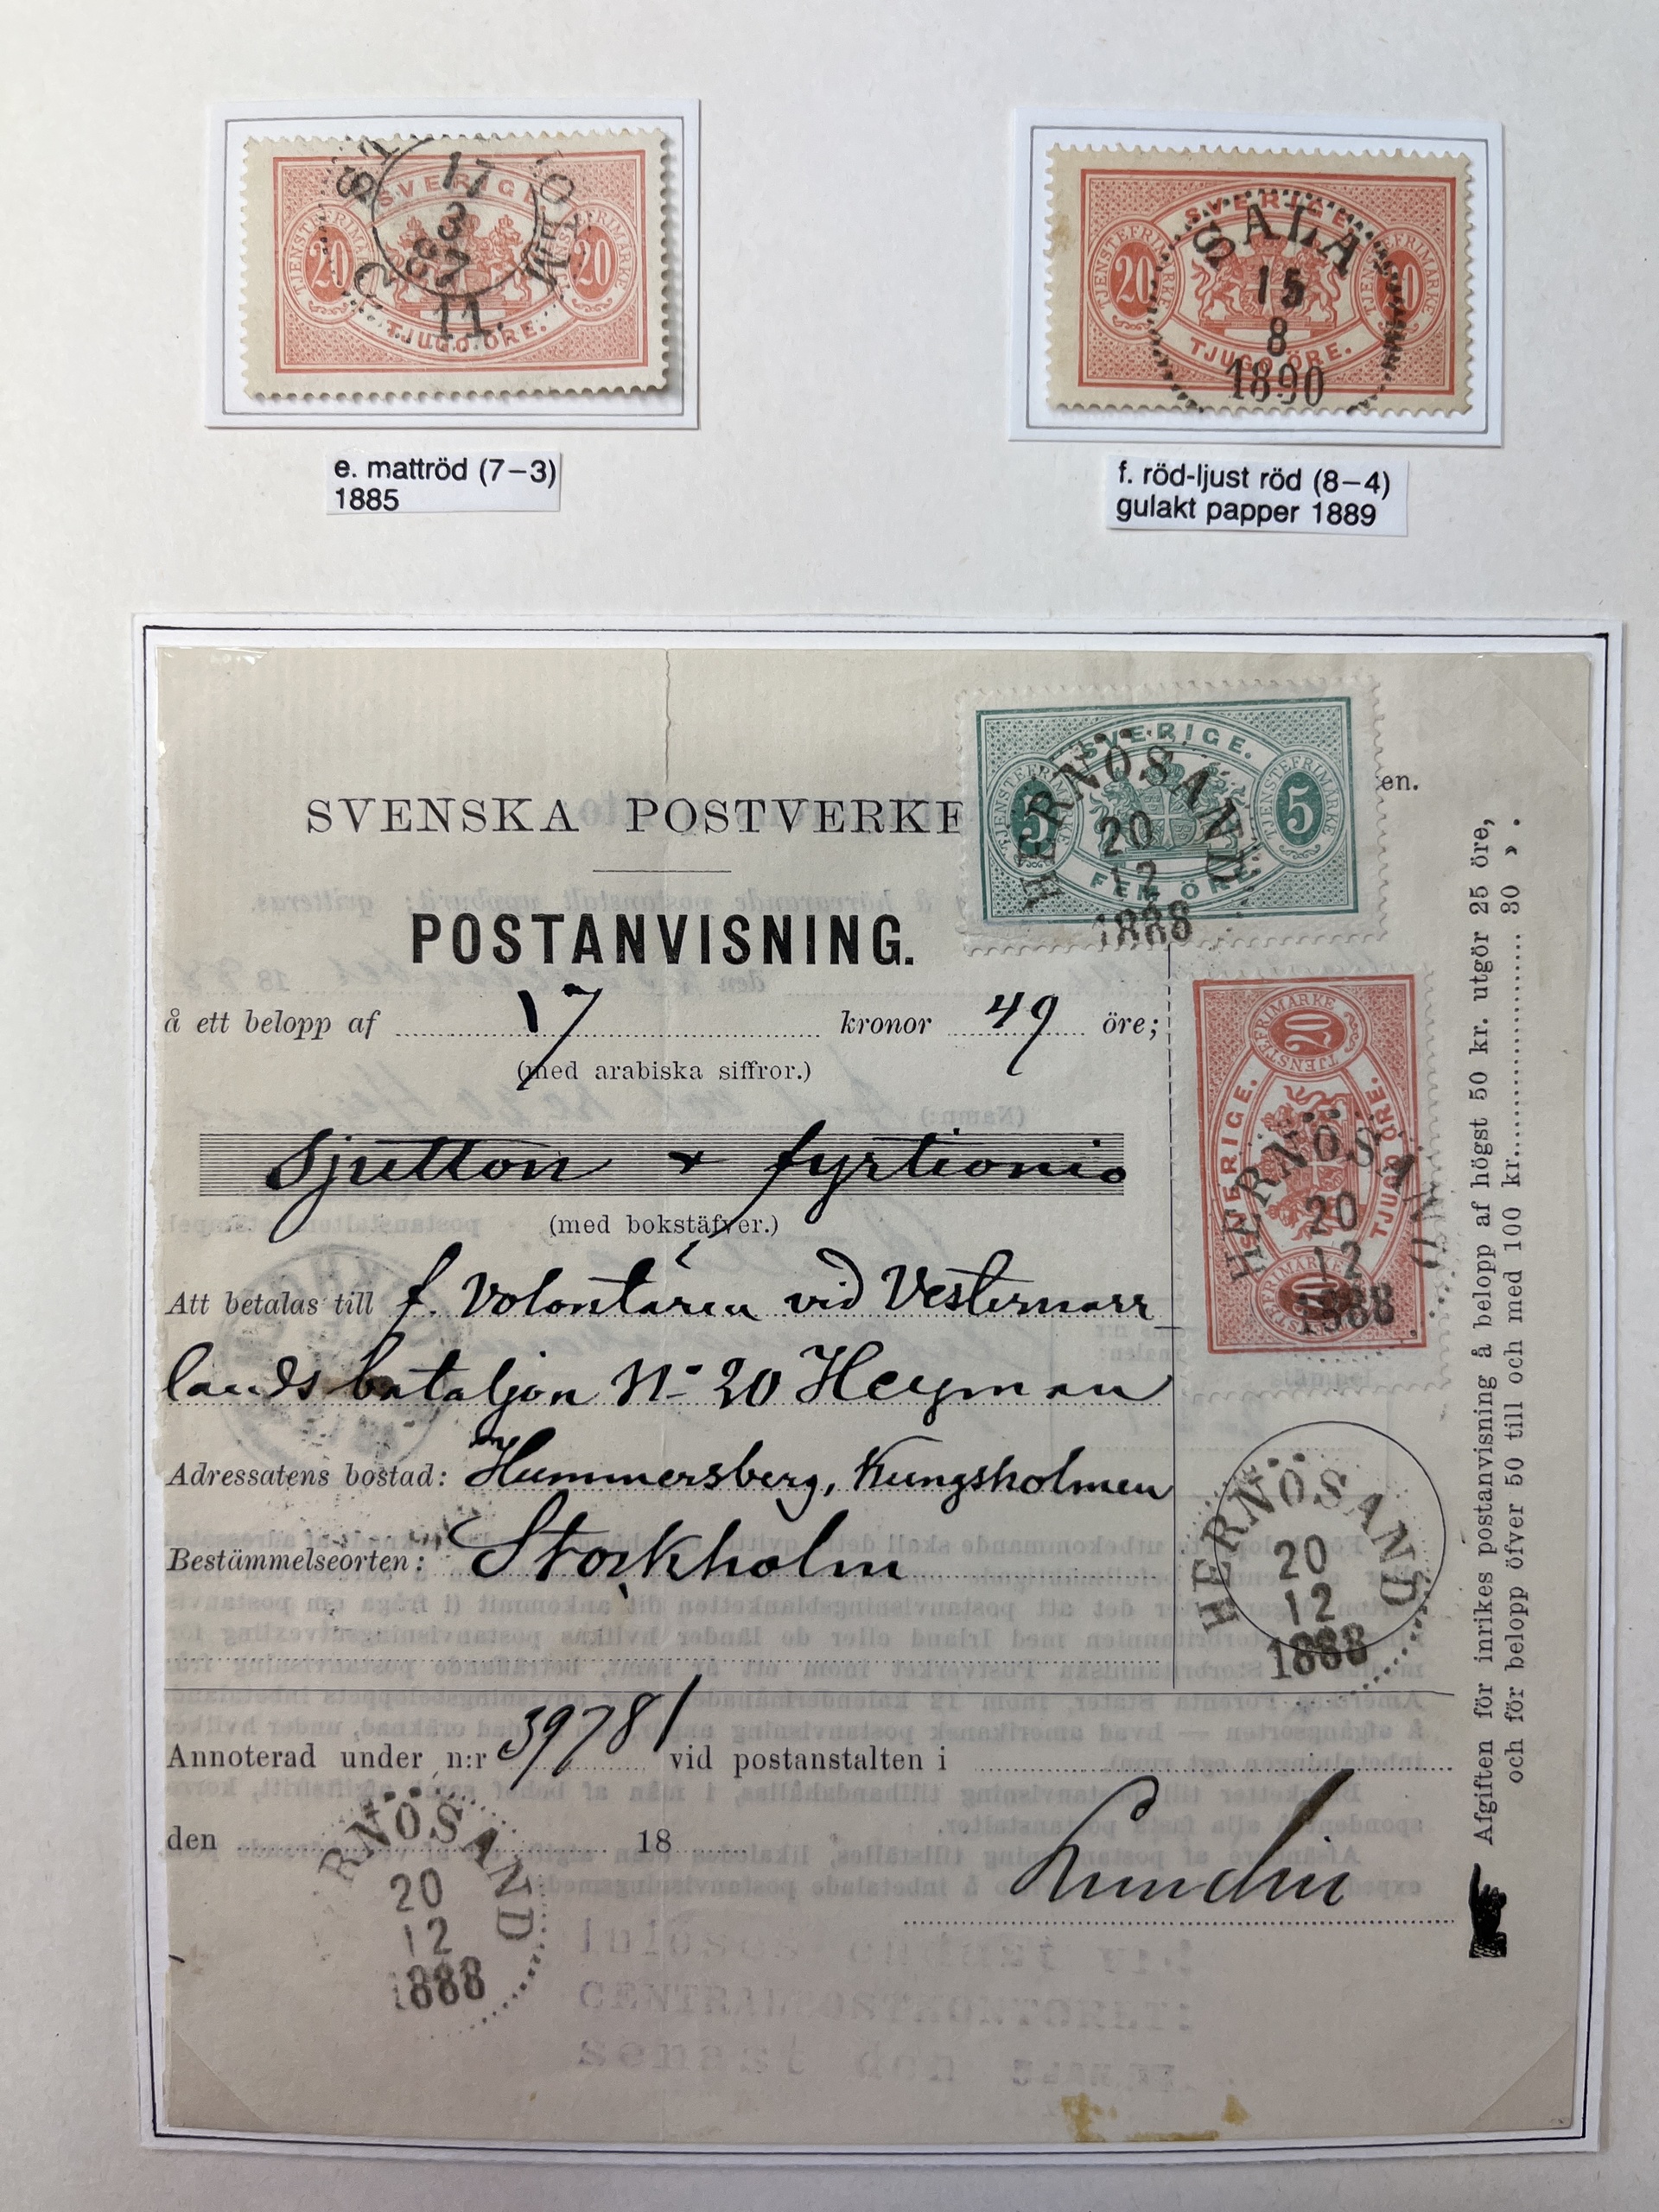 SVERIGE.
TJENSTEFRIMÄRKE
20
20
TJUGO ÖRE.
17
3
87
11.
SVERIGE.
TJENSTEFRIMÄRKE
20
TJUGO ÖRE.
SALA
15
8
1890
e. mattröd (7–3)
1885
f. röd-ljust röd (8–4)
gulakt papper 1889
SVERIGE.
TJENSTEFRIMÄRKE
5
5
FEM ÖRE
HERNÖSAND
20
12
1888
en.
SVENSKA POSTVERKE
POSTANVISNING.
å ett belopp af 17 kronor 49 öre;
(med arabiska siffror.)
Sjutton + fyrtionio
(med bokstäfver.)
Att betalas till f. Volontären vid Vesternorr
lands bataljon No 20 Heyman
Adressatens bostad: Hummersberg, Kungsholmen
Bestämmelseorten: Stockholm
SVERIGE.
TJENSTEFRIMÄRKE
20
TJUGO ÖRE.
HERNÖSAND
20
12
1888
HERNÖSAND
20
12
1888
Annoterad under n:r 39781 vid postanstalten i
den 18
Lundin
RNÖSAND
20
12
1888
Inlöses endast
CENTRALPOSTKONTORET
senast den
Afgiften för inrikes postanvisning å belopp af högst 50 kr. utgör 25 öre,
och för belopp öfver 50 till och med 100 kr. 30 » .